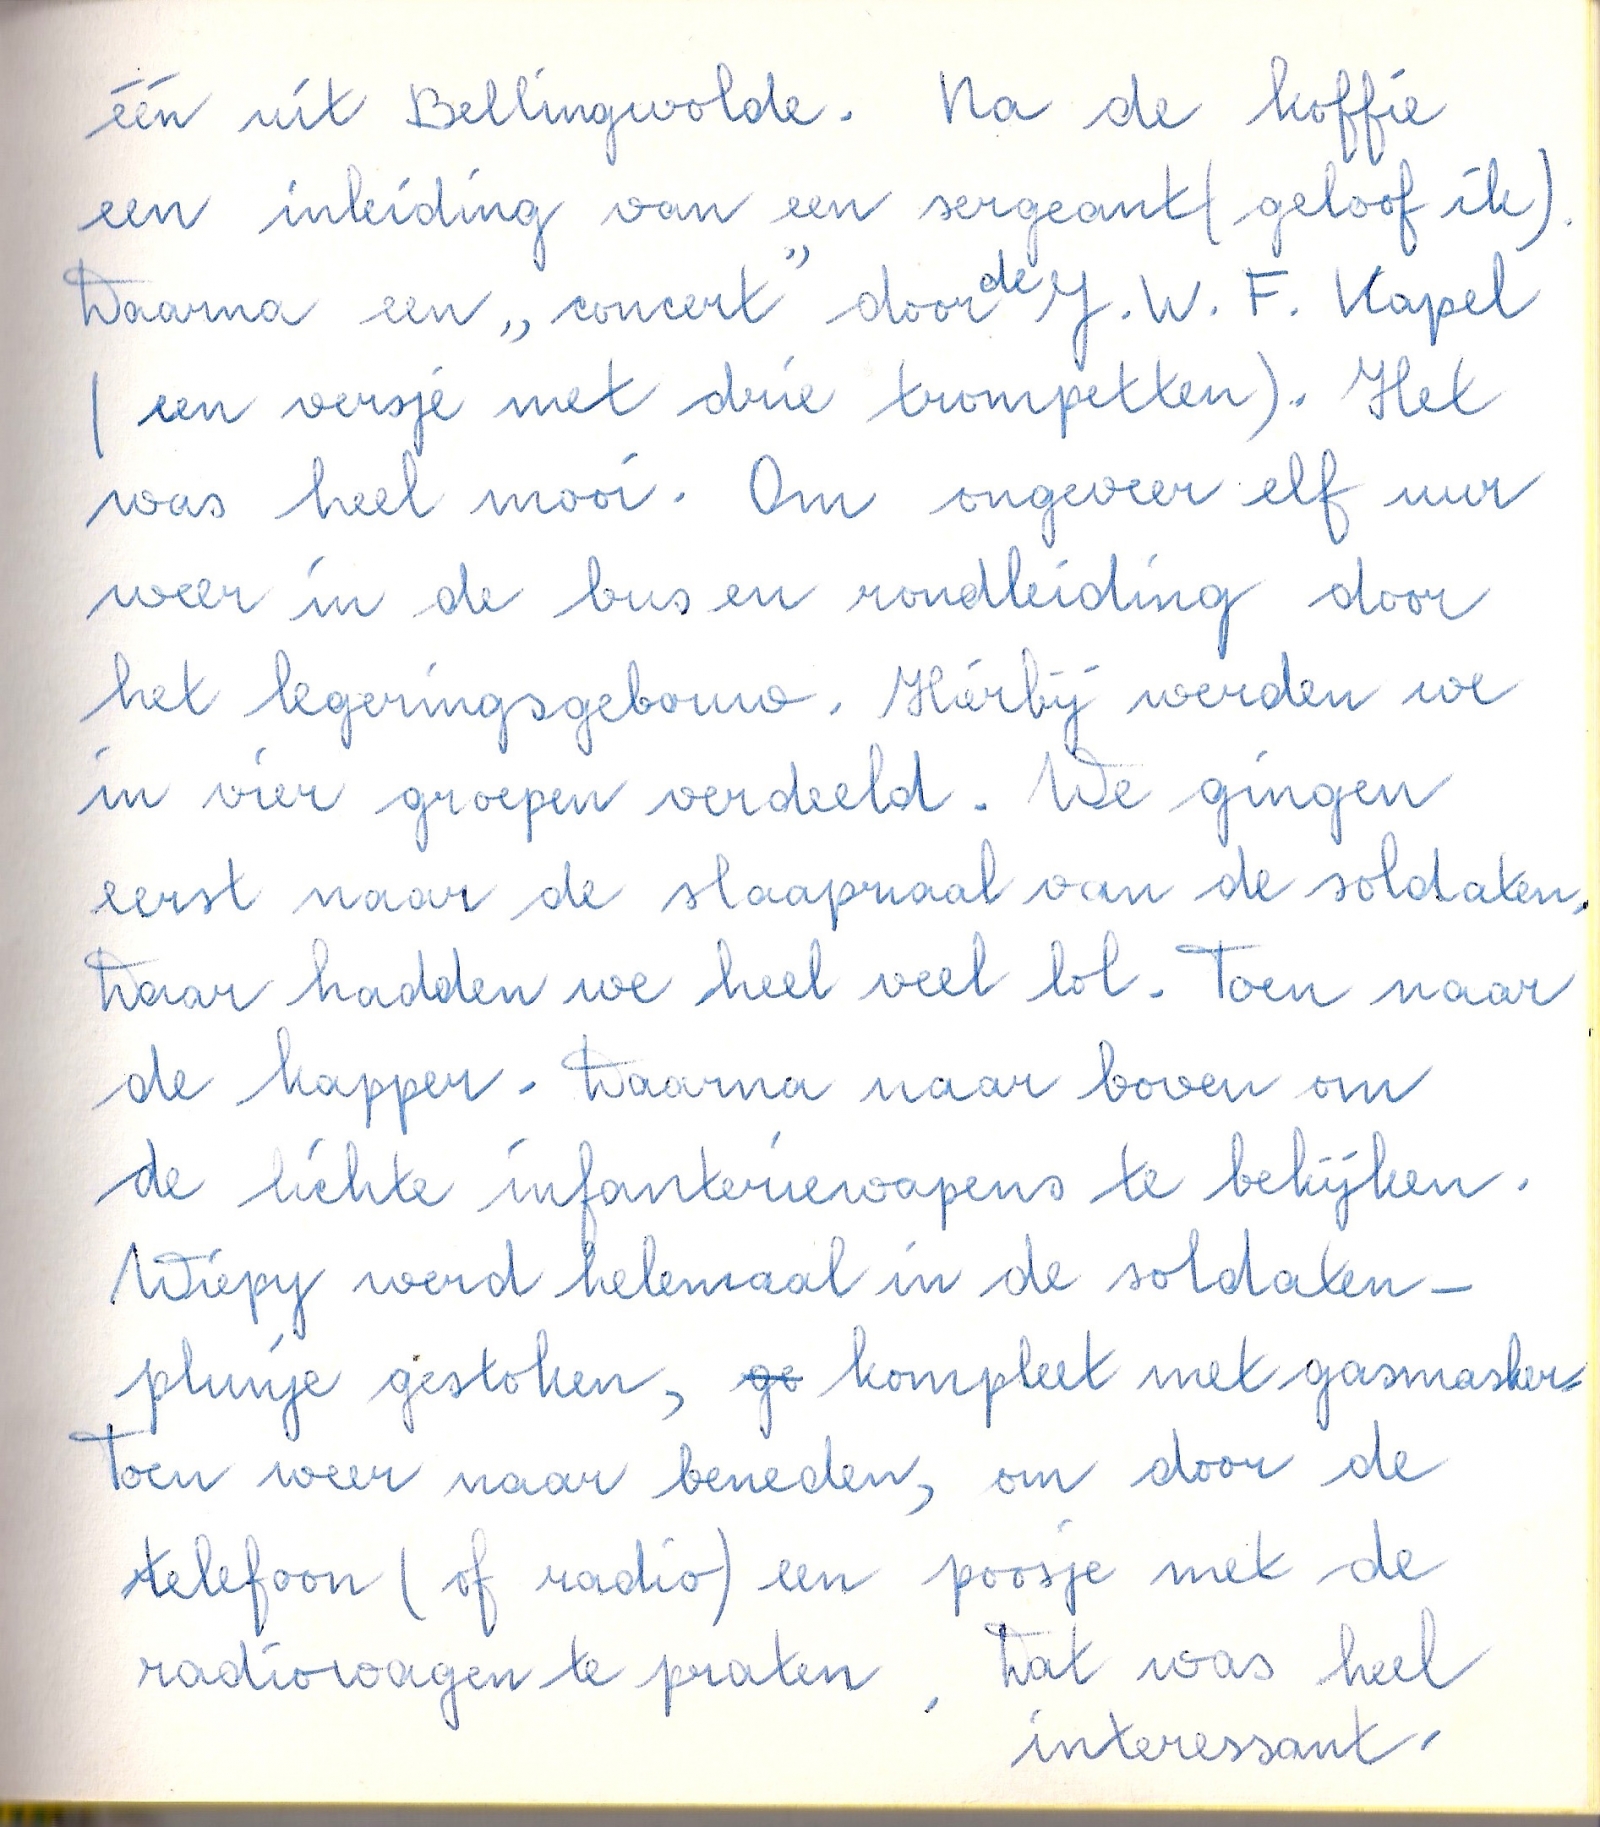 één uit Bellingwolde. Na de koffie
een inleiding van een sergeant (geloof ik).
Daarna een „concert” door de J.W.F. Kapel
(een versje met drie trompetten). Het
was heel mooi. Om ongeveer elf uur
weer in de bus en rondleiding door
het legeringsgebouw. Hierbij werden we
in vier groepen verdeeld. We gingen
eerst naar de slaapzaal van de soldaten.
Daar hadden we heel veel lol. Toen naar
de kapper. Daarna naar boven om
de lichte infanteriewapens te bekijken.
Wiepy werd helemaal in de soldaten-
plunje gestoken, go kompleet met gasmasker.
Toen weer naar beneden, om door de
telefoon (of radio) een poosje met de
radiowagen te praten. Dat was heel
interessant.